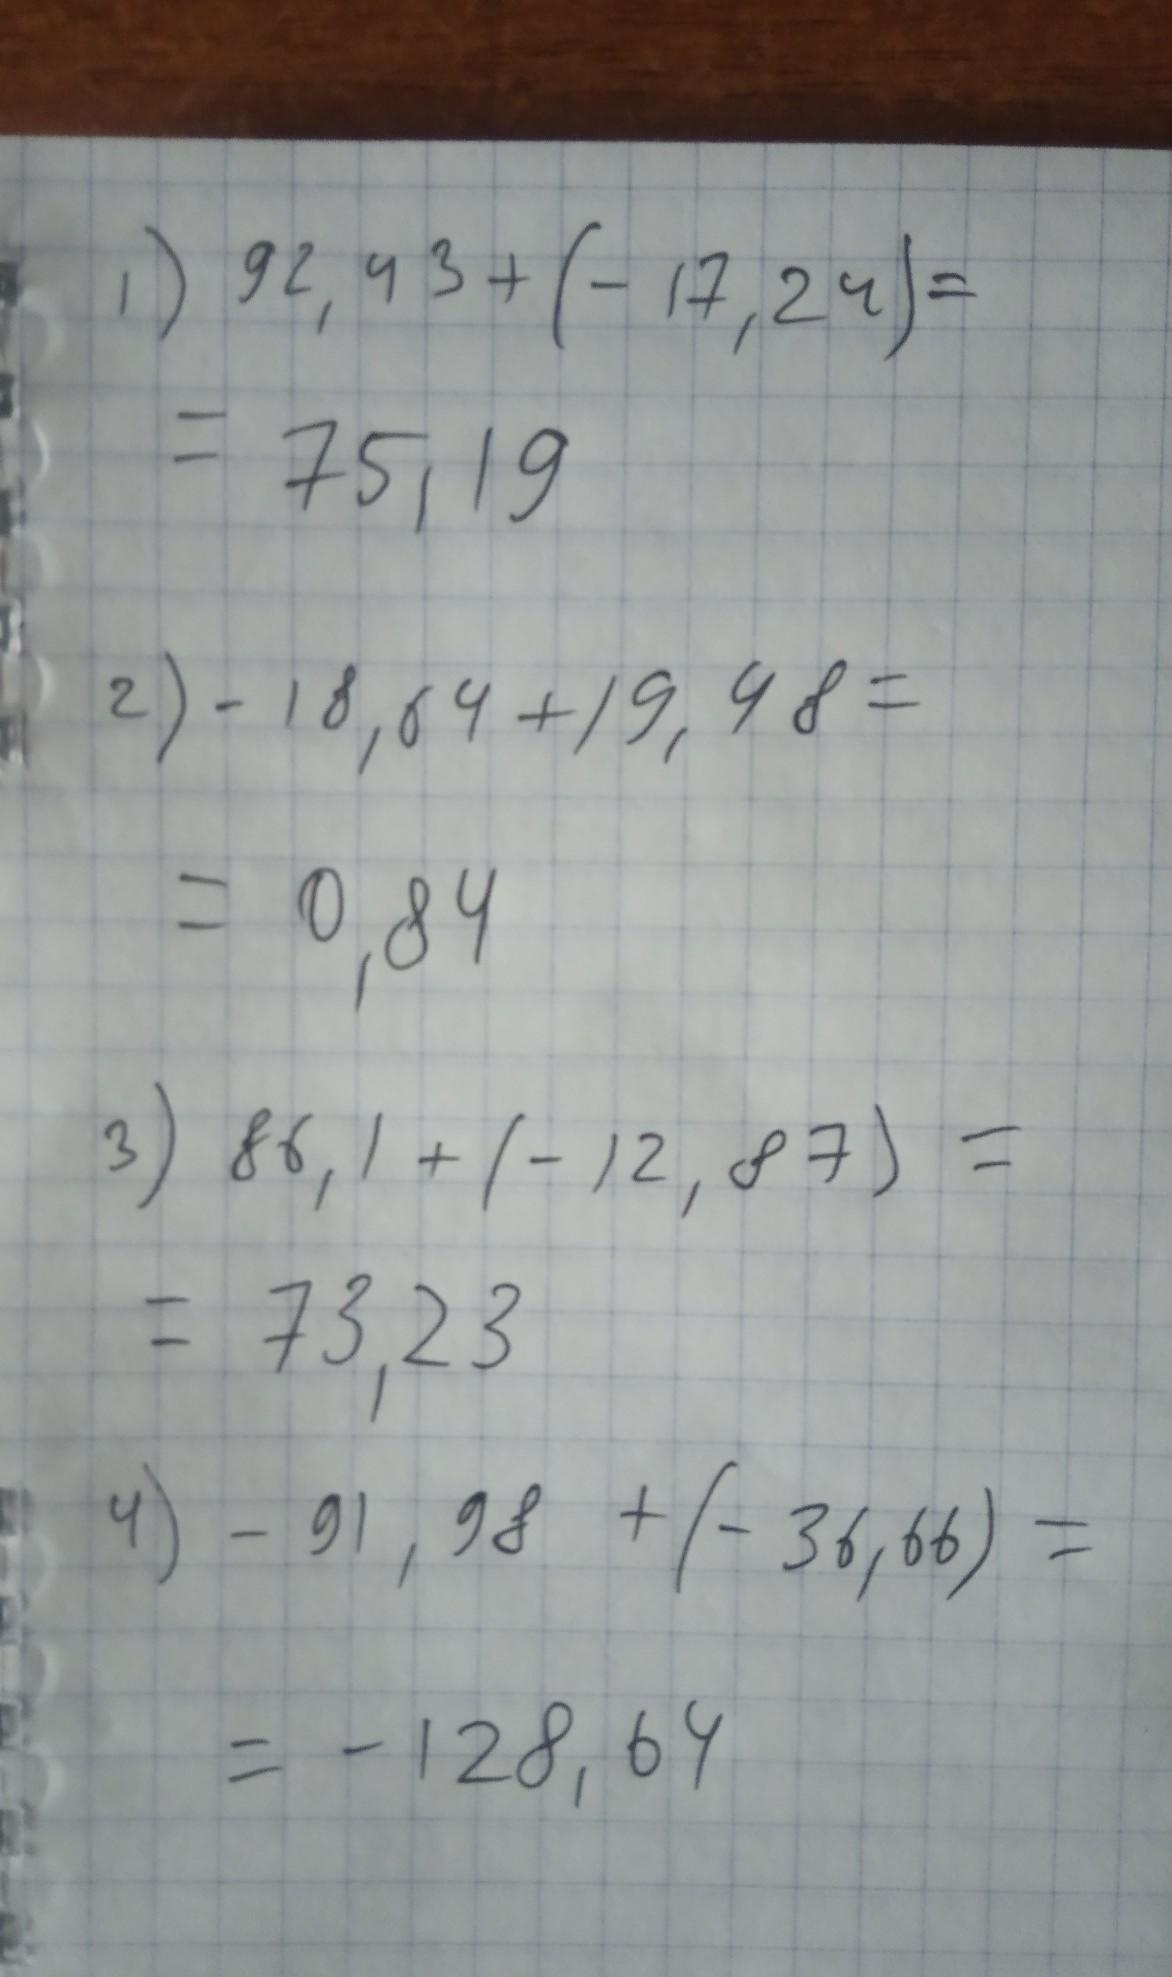 1) 92,43+(-17,24)=
= 75,19
2) -18,64+19,48=
= 0,84
3) 86,1+(-12,87) =
= 73,23
4) -91,98 +(-36,66) =
= -128,64